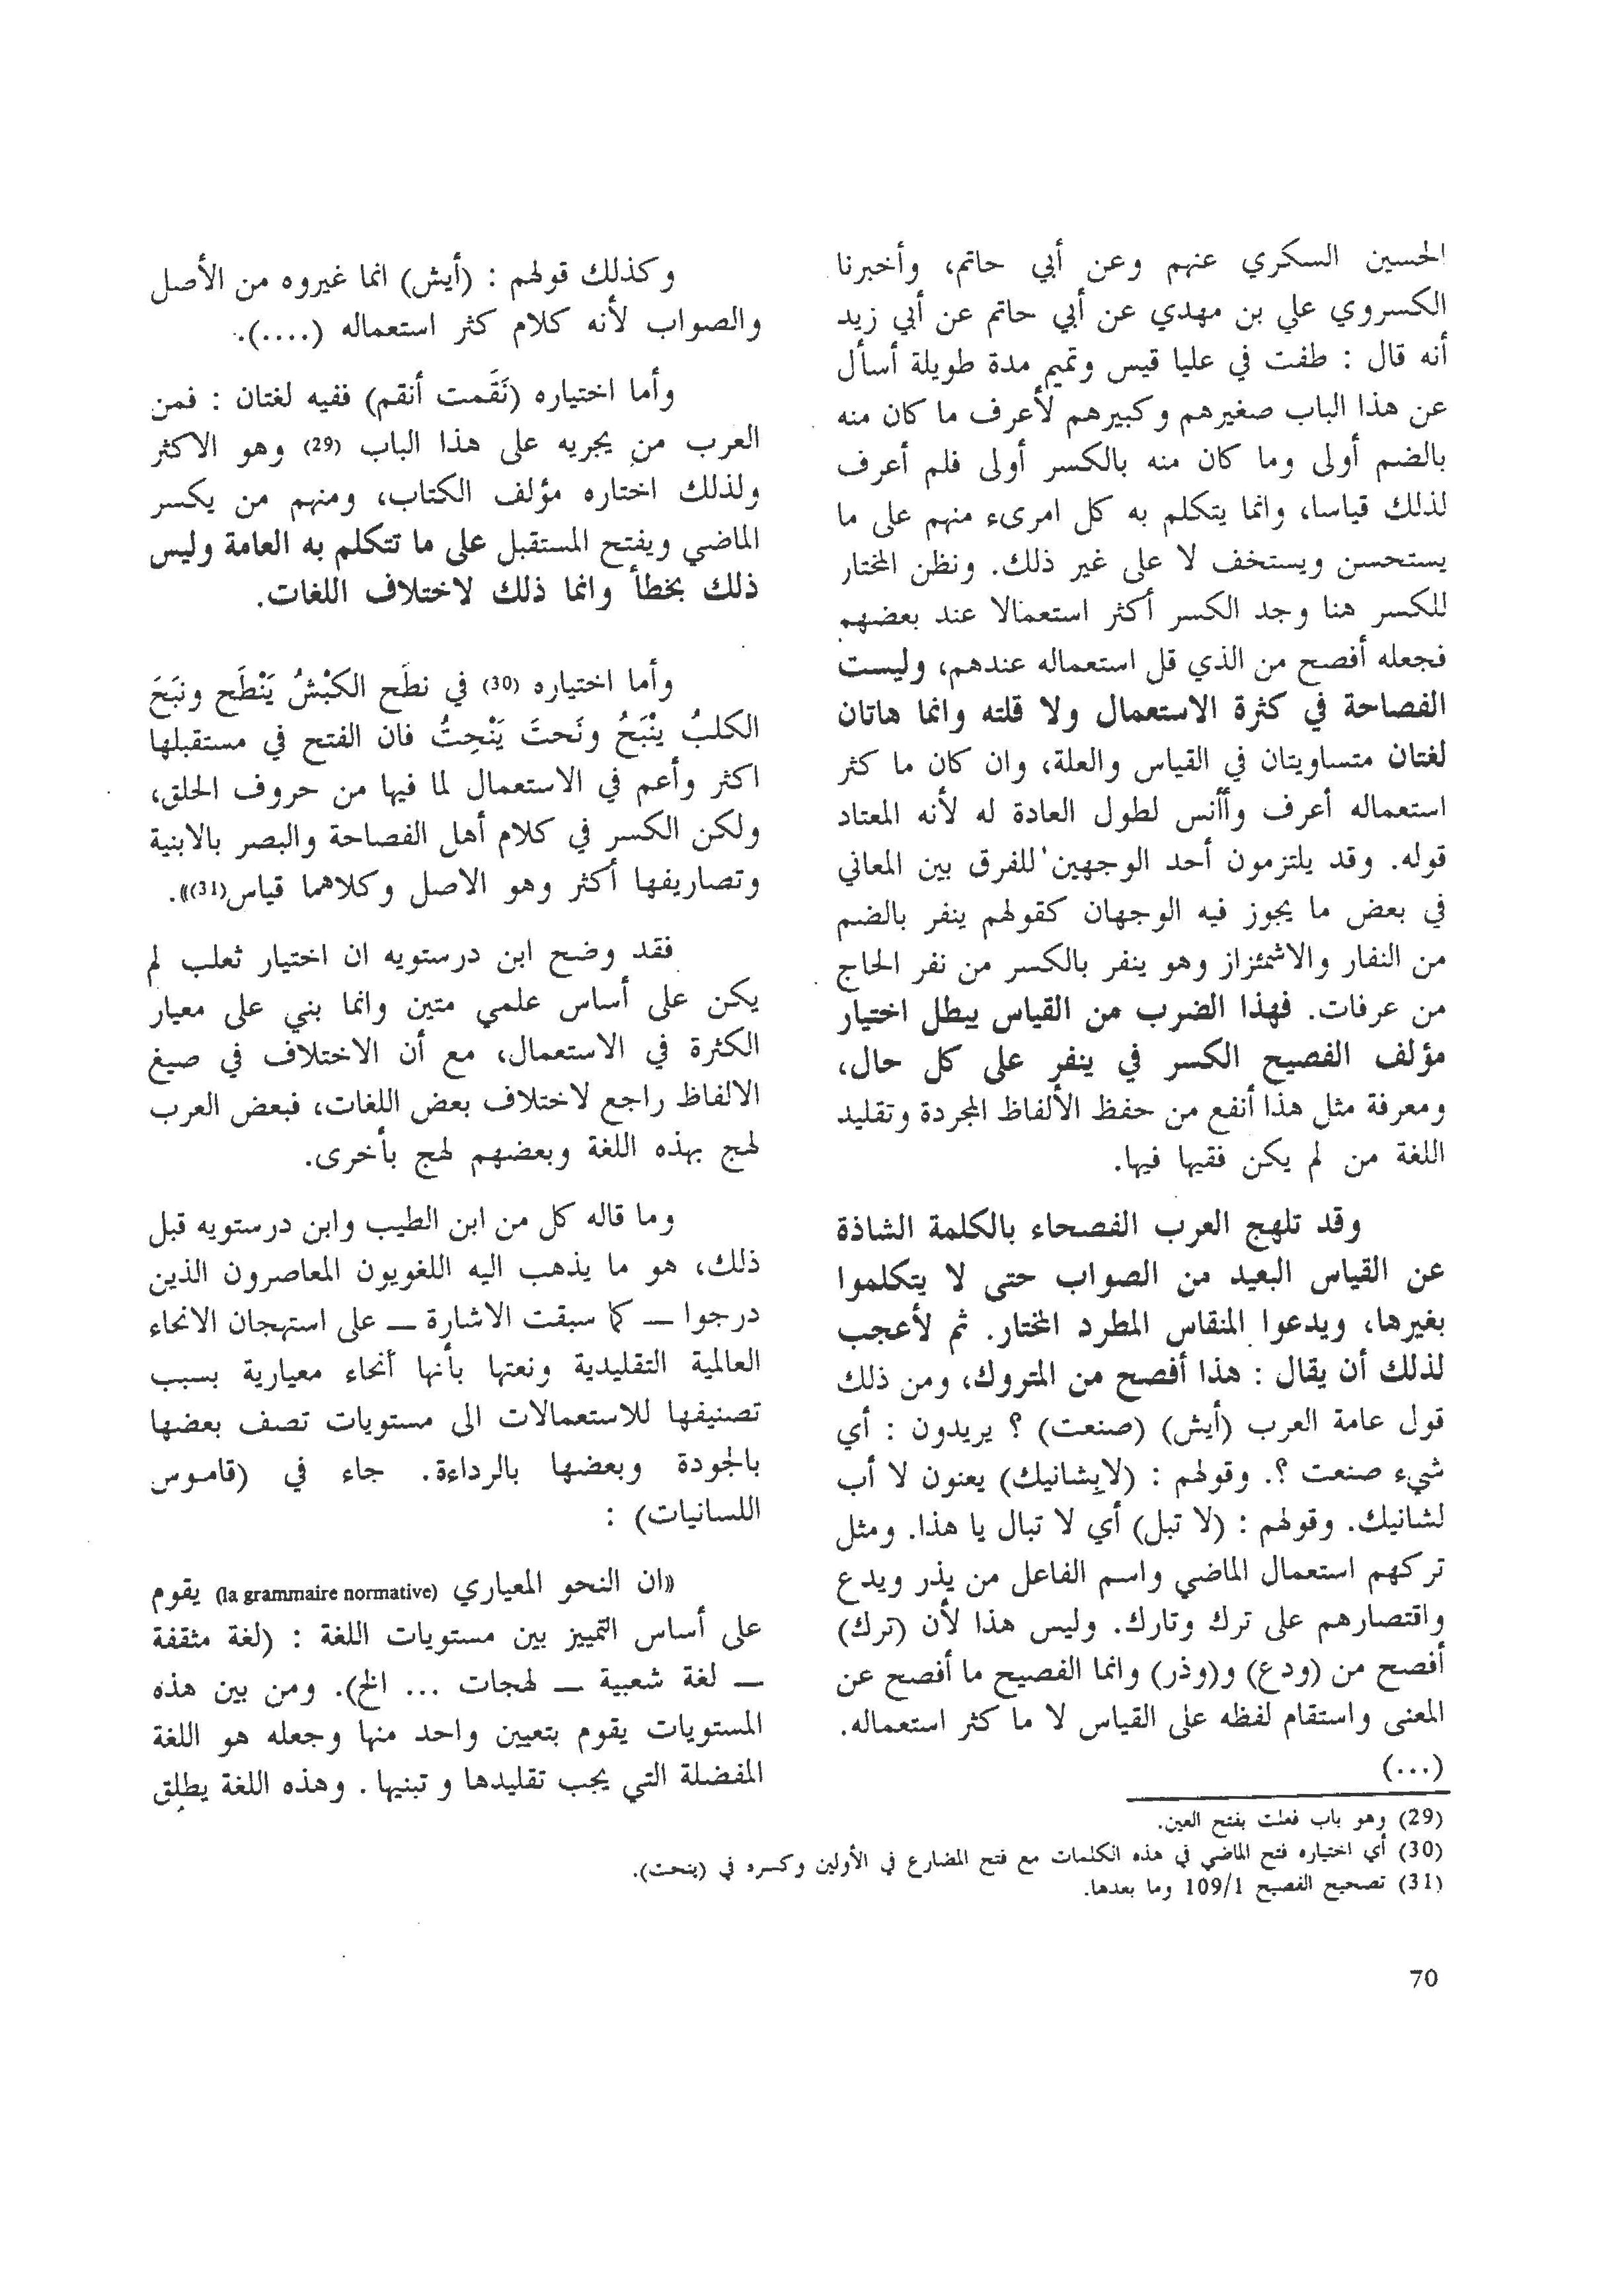 الحسين السكري عنهم وعن أبي حاتم، وأخبرنا
الكسروي علي بن مهدي عن أبي حاتم عن أبي زيد
أنه قال : طفت في عليا قيس وتميم مدة طويلة أسأل
عن هذا الباب صغيرهم وكبيرهم لأعرف ما كان منه
بالضم أولى وما كان منه بالكسر أولى فلم أعرف
لذلك قياسا، وانما يتكلم به كل امرىء منهم على ما
يستحسن ويستخف لا على غير ذلك. ونظن المختار
للكسر هنا وجد الكسر أكثر استعمالا عند بعضهم
فجعله أفصح من الذي قل استعماله عندهم، وليست
الفصاحة في كثرة الاستعمال ولا قلته وانما هاتان
لغتان متساويتان في القياس والعلة، وان كان ما كثر
استعماله أعرف وأأنس لطول العادة له لأنه المعتاد
قوله. وقد يلتزمون أحد الوجهين للفرق بين المعاني
في بعض ما يجوز فيه الوجهان كقولهم ينفر بالضم
من النفار والاشمئزاز وهو ينفر بالكسر من نفر الحاج
من عرفات. فهذا الضرب من القياس يبطل اختيار
مؤلف الفصيح الكسر في ينفر على كل حال،
ومعرفة مثل هذا أنفع من حفظ الألفاظ المجردة وتقليد
اللغة من لم يكن فقيها فيها.
وقد تلهج العرب الفصحاء بالكلمة الشاذة
عن القياس البعيد من الصواب حتى لا يتكلموا
بغيرها، ويدعوا المنقاس المطرد المختار. ثم لأعجب
لذلك أن يقال : هذا أفصح من المتروك، ومن ذلك
قول عامة العرب (أيش) (صنعت) ؟ يريدون : أي
شيء صنعت ؟. وقولهم : (لابِشانيك) يعنون لا أب
لشانيك. وقولهم : (لا تبل) أي لا تبال يا هذا. ومثل
تركهم استعمال الماضي واسم الفاعل من يذر ويدع
واقتصارهم على ترك وتارك. وليس هذا لأن (ترك)
أفصح من (ودع) و(وذر) وانما الفصيح ما أفصح عن
المعنى واستقام لفظه على القياس لا ما كثر استعماله.
(...)
وكذلك قولهم : (أيش) انما غيروه من الأصل
والصواب لأنه كلام كثر استعماله (....).
وأما اختياره (نَقَمت أنقم) ففيه لغتان : فمن
العرب من يجريه على هذا الباب (29) وهو الاكثر
ولذلك اختاره مؤلف الكتاب، ومنهم من يكسر
الماضي ويفتح المستقبل على ما تتكلم به العامة وليس
ذلك بخطأ وانما ذلك لاختلاف اللغات.
وأما اختياره (30) في نطَح الكبْشُ يَنْطَح ونبَحَ
الكلبُ ينْبَحُ ونَحتَ يَنْحِتُ فان الفتح في مستقبلها
اكثر وأعم في الاستعمال لما فيها من حروف الحلق،
ولكن الكسر في كلام أهل الفصاحة والبصر بالابنية
وتصاريفها أكثر وهو الاصل وكلاهما قياس(31)».
فقد وضح ابن درستويه ان اختيار ثعلب لم
يكن على أساس علمي متين وانما بني على معيار
الكثرة في الاستعمال، مع أن الاختلاف في صيغ
الالفاظ راجع لاختلاف بعض اللغات، فبعض العرب
لهج بهذه اللغة وبعضهم لهج بأخرى.
وما قاله كل من ابن الطيب وابن درستويه قبل
ذلك، هو ما يذهب اليه اللغويون المعاصرون الذين
درجوا — كما سبقت الاشارة — على استهجان الانحاء
العالمية التقليدية ونعتها بأنها أنحاء معيارية بسبب
تصنيفها للاستعمالات الى مستويات تصف بعضها
بالجودة وبعضها بالرداءة. جاء في (قاموس
اللسانيات) :
«ان النحو المعياري (la grammaire normative) يقوم
على أساس التمييز بين مستويات اللغة : (لغة مثقفة
— لغة شعبية — لهجات ... الخ). ومن بين هذه
المستويات يقوم بتعيين واحد منها وجعله هو اللغة
المفضلة التي يجب تقليدها و تبنيها . وهذه اللغة يطلق
(29) وهو باب فعلت بفتح العين.
(30) أي اختياره فتح الماضي في هذه الكلمات مع فتح المضارع في الأولين وكسره في (ينحت).
(31) تصحيح الفصيح 109/1 وما بعدها.
70